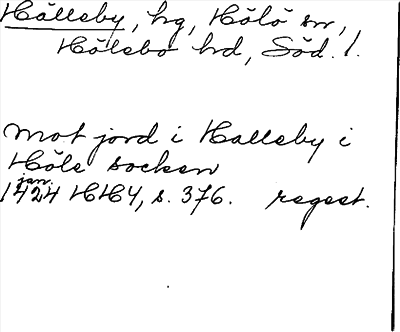 Hälleby, hg, Hölö sn,
Hölebo hd, Söd. l.
mot jord i Halleby i
Höle socken
jan.
1424 HH4, s. 376. regest.